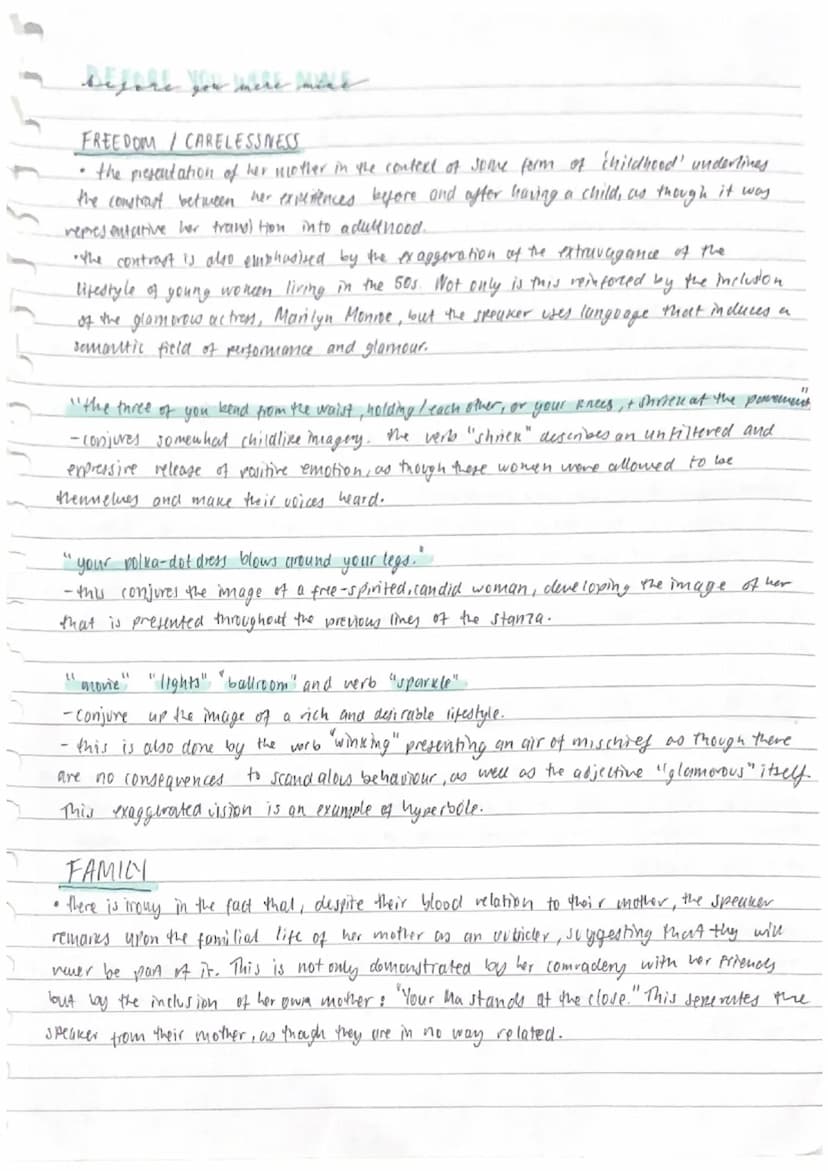 BEFORE YOU WERE MINE
before you were mine
FREEDOM / CARELESSNESS
• the presentation of her mother in the context of some form of 'childhood' underlines
the contrast between her experiences before and after having a child, as though it was
representative her transition into adulthood.
• the contrast is also emphasised by the exaggeration of the extravagance of the
lifestyle of young women living in the 50s. Not only is this reinforced by the inclusion
of the glamorous actress, Marilyn Monroe, but the speaker uses language that induces a
semantic field of performance and glamour.
"the three of you bend from the waist, holding / each other, or your knees, + shriek at the pavement"
- conjures somewhat childlike imagery. the verb "shriek" describes an unfiltered and
expressive release of positive emotion, as though these women were allowed to be
themselves and make their voices heard.
"your polka-dot dress blows around your legs."
- this conjures the image of a free-spirited, candid woman, developing the image of her
that is presented throughout the previous lines of the stanza.
"movie" "lights" "ballroom" and verb "sparkle"
- conjure up the image of a rich and desirable lifestyle.
- this is also done by the verb "winking" presenting an air of mischief as though there
are no consequences to scandalous behaviour, as well as the adjective "glamorous" itself.
This exaggerated vision is an example of hyperbole.
FAMILY
• there is irony in the fact that, despite their blood relation to their mother, the speaker
remarks upon the familial life of her mother as an outsider, suggesting that they will
never be part of it. This is not only demonstrated by her comradery with her friends
but by the inclusion of her own mother: "Your Ma stands at the close." This separates the
speaker from their mother, as though they are in no way related.